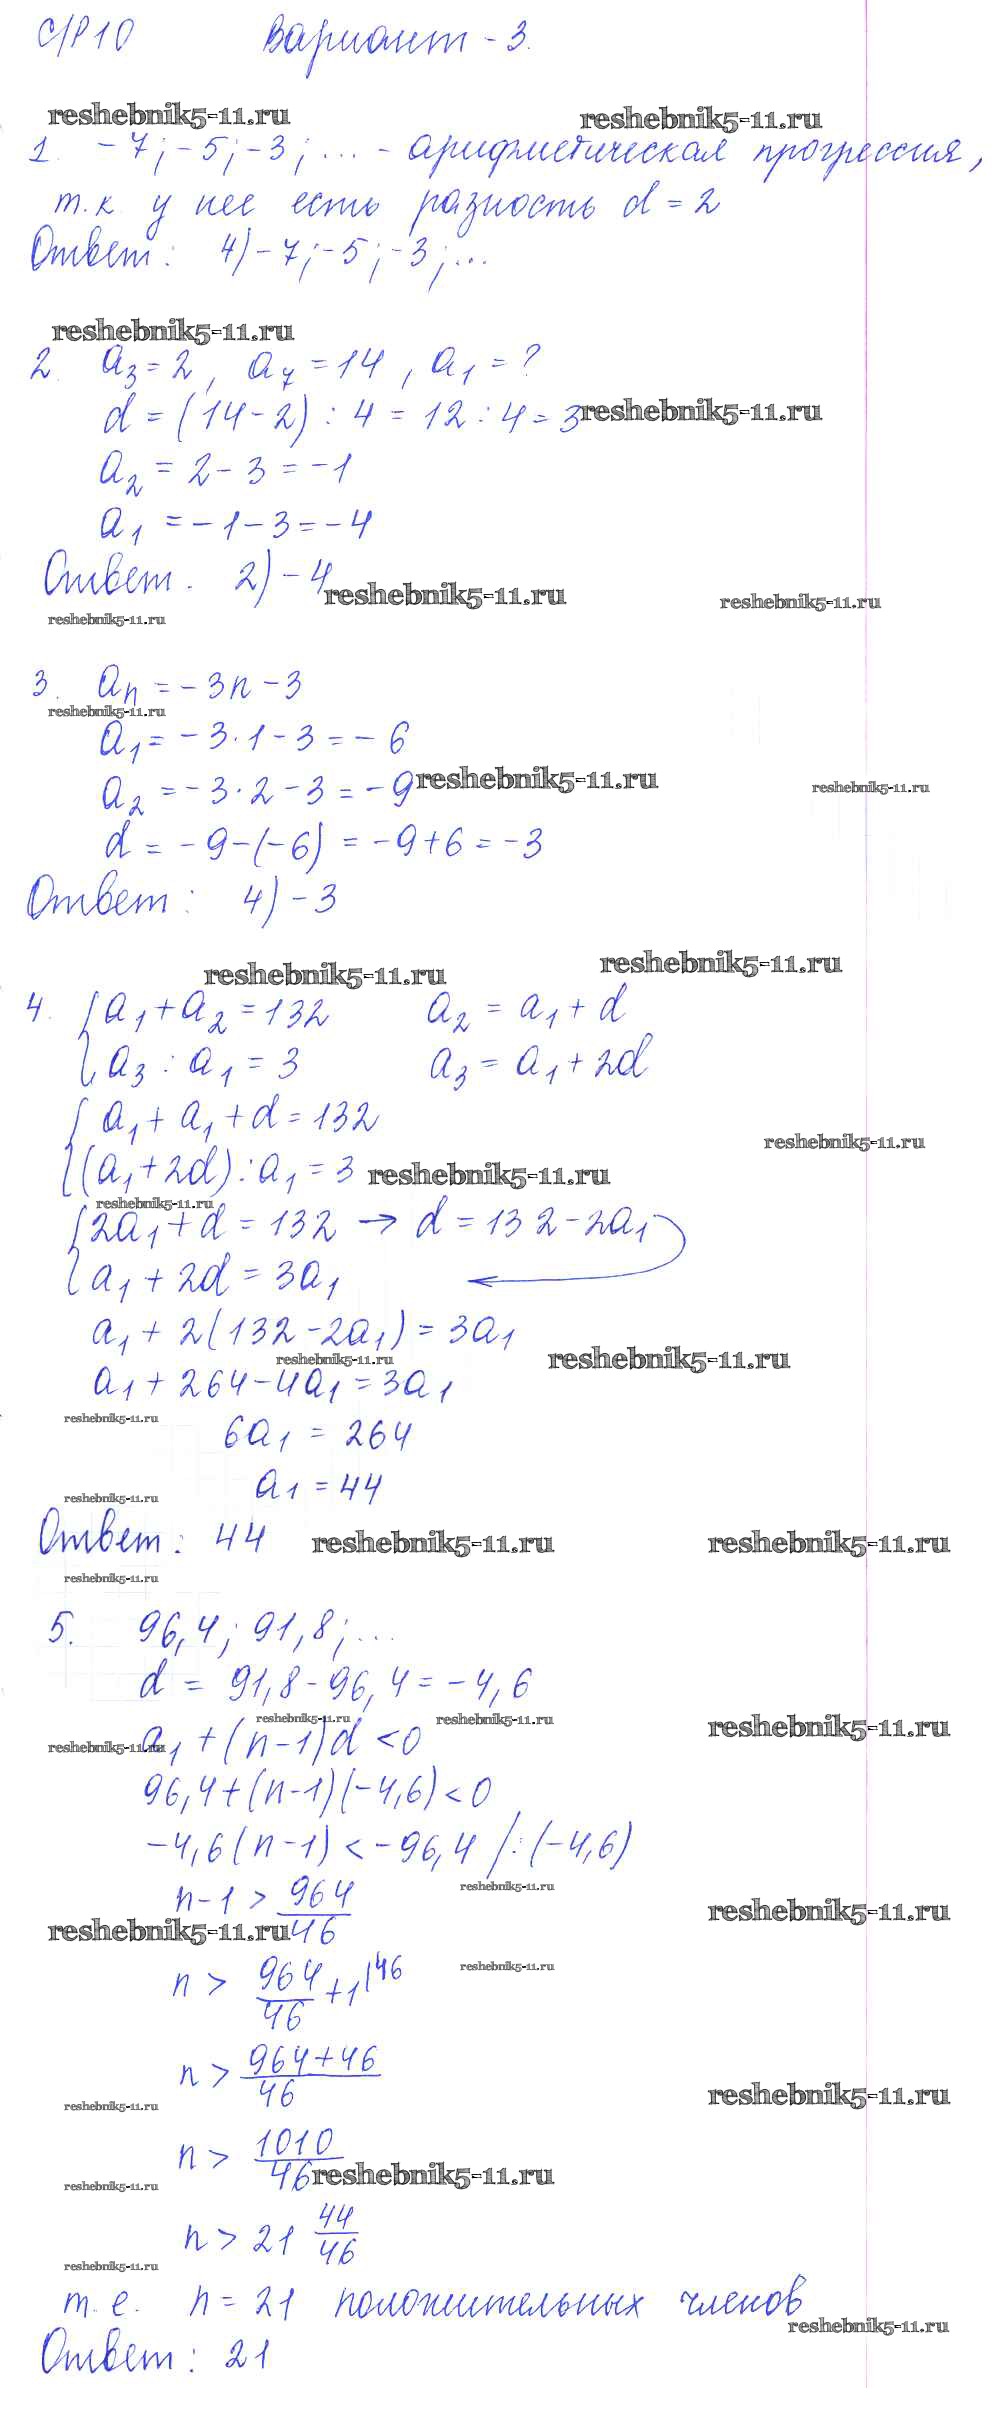 С/Р 10 Вариант - 3.
reshebnik5-11.ru reshebnik5-11.ru
1. -7; -5; -3; ... - арифметическая прогрессия,
т.к. у нее есть разность d = 2
Ответ: 4) -7; -5; -3; ...
reshebnik5-11.ru
2. a3 = 2, a7 = 14, a1 = ?
d = (14 - 2) : 4 = 12 : 4 = 3 reshebnik5-11.ru
a2 = 2 - 3 = -1
a1 = -1 - 3 = -4
Ответ. 2) -4 reshebnik5-11.ru reshebnik5-11.ru
reshebnik5-11.ru
3. an = -3n - 3
reshebnik5-11.ru
a1 = -3·1 - 3 = -6
a2 = -3·2 - 3 = -9 reshebnik5-11.ru reshebnik5-11.ru
d = -9 - (-6) = -9 + 6 = -3
Ответ: 4) -3
reshebnik5-11.ru reshebnik5-11.ru
4. { a1 + a2 = 132 a2 = a1 + d
a3 : a1 = 3 a3 = a1 + 2d
{ a1 + a1 + d = 132
reshebnik5-11.ru
(a1 + 2d) : a1 = 3 reshebnik5-11.ru
reshebnik5-11.ru
{ 2a1 + d = 132 → d = 132 - 2a1
a1 + 2d = 3a1
a1 + 2(132 - 2a1) = 3a1
reshebnik5-11.ru reshebnik5-11.ru
a1 + 264 - 4a1 = 3a1
reshebnik5-11.ru
6a1 = 264
a1 = 44
reshebnik5-11.ru
Ответ: 44 reshebnik5-11.ru reshebnik5-11.ru
reshebnik5-11.ru
5. 96,4; 91,8; ...
d = 91,8 - 96,4 = -4,6
reshebnik5-11.ru reshebnik5-11.ru reshebnik5-11.ru
reshebnik5-11.ru
a1 + (n-1)d < 0
96,4 + (n-1)(-4,6) < 0
-4,6(n-1) < -96,4 /:(-4,6)
reshebnik5-11.ru
n-1 > 964/46
reshebnik5-11.ru reshebnik5-11.ru
reshebnik5-11.ru
n > 964/46 + 1 |46
n > 964+46/46
reshebnik5-11.ru reshebnik5-11.ru
n > 1010/46
reshebnik5-11.ru reshebnik5-11.ru
n > 21 44/46
reshebnik5-11.ru
т.е. n = 21 положительных членов
reshebnik5-11.ru
Ответ: 21